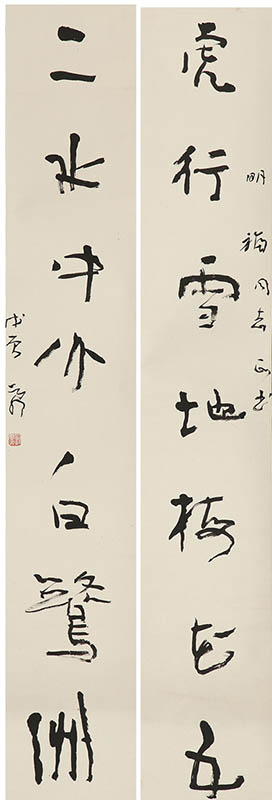 虎行雪地梅花五
明福同志正
二水中分白鷺洲
戊寅